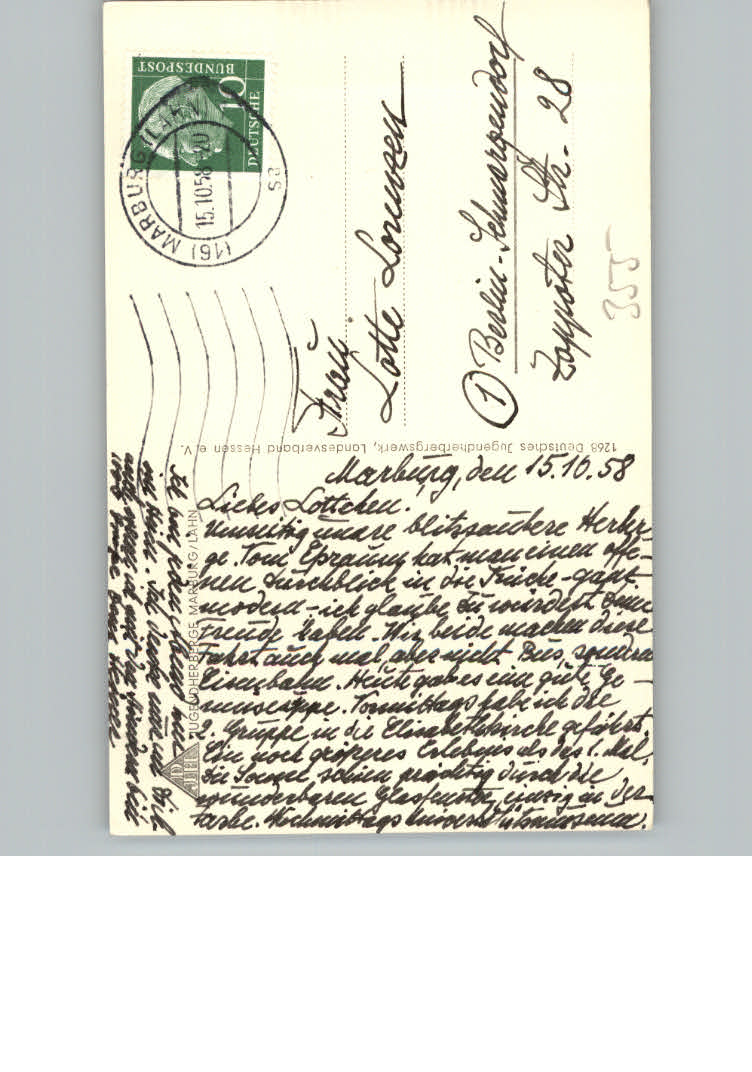 Marburg, den 15.10.58
Liebes Lottchen!
Umseitig unsre blitzsaubere Herber-
ge. Vom Eßraum hat man einen offe-
nen Durchblick in die Küche - ganz
modern - ich glaube Du würdest Deine
Freude haben. Wir beide machen diese
Fahrt auch mal, aber nicht Bus, sondern
Eisenbahn. Heute gab es eine gute Ge-
müsesuppe. Vormittags habe ich die
2. Gruppe in die Elisabethkirche geführt.
Ein noch größeres Erlebnis als das 1. Mal,
die Sonne schien prächtig durch die
wunderbaren Glasfenster, einzig in der
Farbe. Nachmittags Universitätsmuseum.
Ich bin jeden Abend
Frau
Lotte Lorenzen
(1) Berlin-Schmargendorf
Zoppoter Str. 28
355
DEUTSCHE
BUNDESPOST
10
(16) MARBURG (LAHN)
15.10.58
sa
1268 Deutsches Jugendherbergswerk, Landesverband Hessen e. V.
JUGENDHERBERGE MARBURG/LAHN